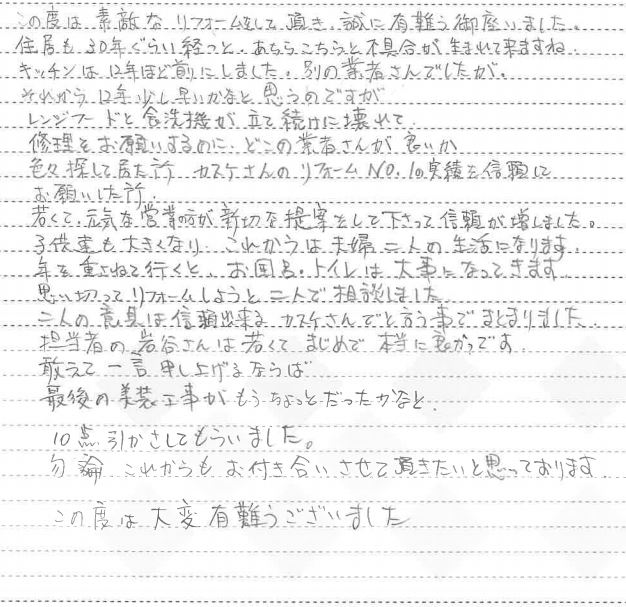 この度は素敵なリフォームをして頂き、誠に有難う御座いました。
住居も30年ぐらい経つと、あちらこちらと不具合が生まれて来ますね
キッチンは12年ほど前にしました。別の業者さんでしたが、
それから12年少し早いかなと思うのですが
レンジフードと食洗機が立て続けに壊れて
修理をお願いするのに、どこの業者さんが良いか
色々探して居た所 カスケさんのリフォームNO.1の実績を信頼して
お願いした所、
若くて、元気な営業の方が新切な提案をして下さって信頼が増しました。
子供達も大きくなり、これからは夫婦二人の生活になります。
年を重ねて行くと、お風呂・トイレは大事になってきます
思い切ってリフォームしようと二人で相談しました。
二人の意見は信頼出来るカスケさんでと言う事でまとまりました。
担当者の岩谷さんは若くてまじめで本当に良かったです
敢えて一言申し上げるならば
最後の美装工事がもうちょっとだったかなと、
10点引かさしてもらいました。
勿論これからもお付き合いさせて頂きたいと思っております
この度は大変有難うございました